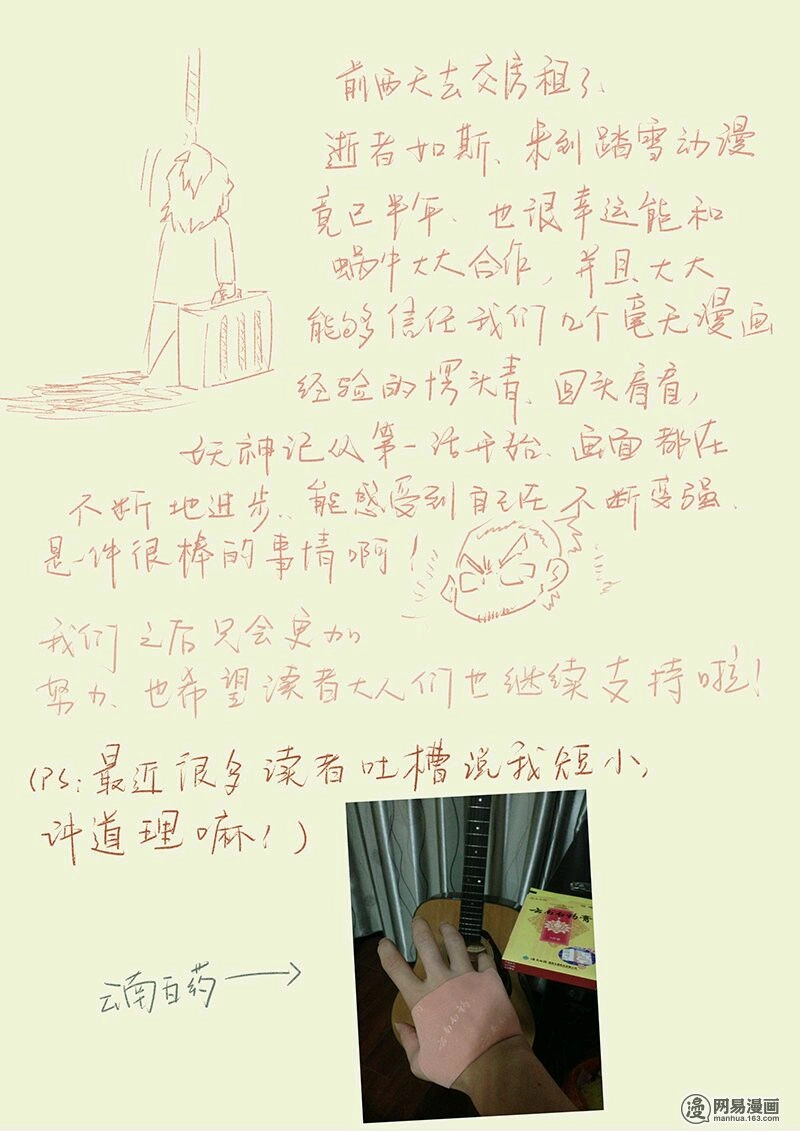 前两天去交房租了、
逝者如斯、来到踏雪动漫
竟已半年、也很幸运能和
蜗牛大大合作,并且大大
能够信任我们几个毫无漫画
经验的愣头青、回头看看,
妖神记从第一话开始、画面都在
不断地进步、能感受到自己在不断变强、
是一件很棒的事情啊!
我们之后只会更加
努力、也希望读者大人们也继续支持啦!
(PS:最近很多读者吐槽说我短小,
讲道理嘛!)
云南白药
云南白药膏
云南白药
网易漫画
manhua.163.com